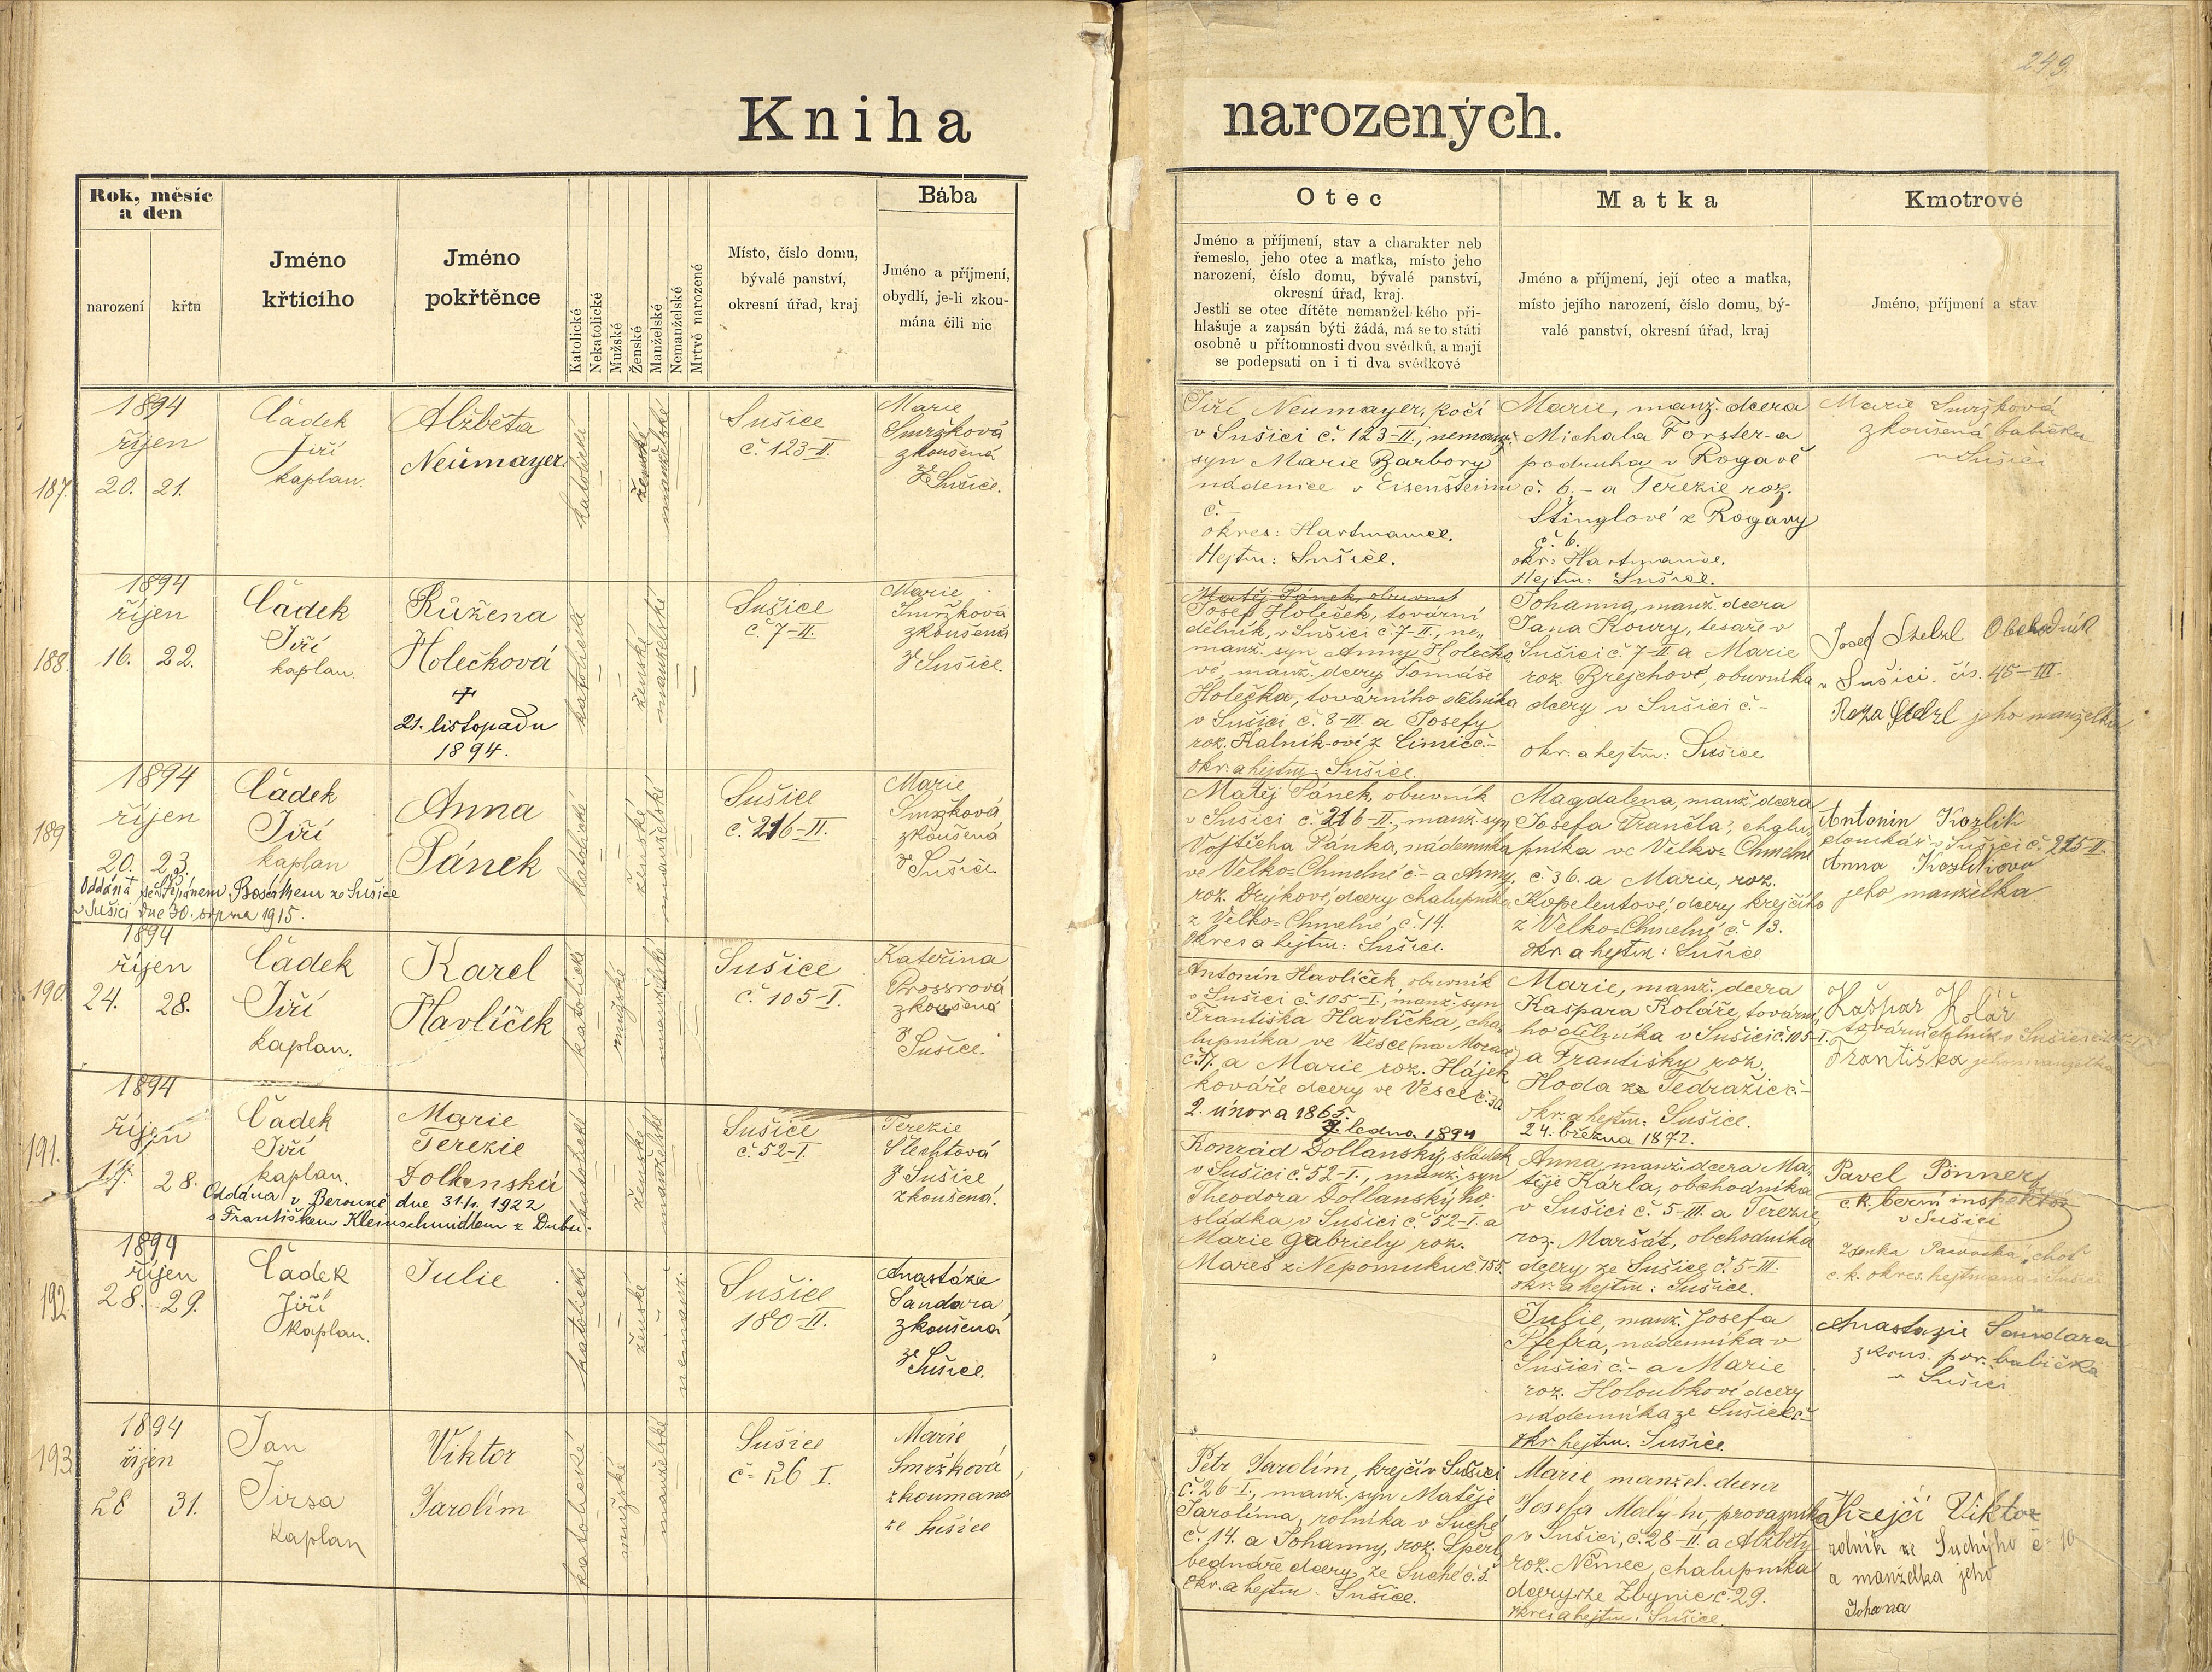 249.
Kniha narozených.
Rok, měsíc
a den
narození
křtu
Jméno
křticího
Jméno
pokřtěnce
Katolické
Nekatolické
Mužské
Ženské
Manželské
Nemanželské
Mrtvě narozené
Místo, číslo domu,
bývalé panství,
okresní úřad, kraj
Bába
Jméno a příjmení,
obydlí, je-li zkou-
mána čili nic
Otec
Jméno a příjmení, stav a charakter neb
řemeslo, jeho otec a matka, místo jeho
narození, číslo domu, bývalé panství,
okresní úřad, kraj.
Jestli se otec dítěte nemanželského při-
hlašuje a zapsán býti žádá, má se to státi
osobně u přítomnosti dvou svědků, a mají
se podepsati on i ti dva svědkové
Matka
Jméno a příjmení, její otec a matka,
místo jejího narození, číslo domu, bý-
valé panství, okresní úřad, kraj
Kmotrové
Jméno, příjmení a stav
187.
1894
říjen
20. 21.
Čádek
Jiří
kaplan.
Alžběta
Neumayer.
katolické
ženské
manželské
Sušice
č. 123-II.
Marie
Smržková
zkoušená
ze Sušice.
Jiří Neumayer, kočí
v Sušici č. 123-II., nemanž.
syn Marie Barbory
nádenice v Eisenšteinu
č.
okres: Hartmanice.
Hejtm: Sušice.
Marie, manž. dcera
Michala Förster-a
podruha v Rogavě
č. 6.- a Terezie roz.
Stinglové z Rogavy
č. 6.
okr: Hartmanice.
Hejtm: Sušice.
Marie Smržková
zkoušená babička
v Sušici
188.
1894
říjen
16. 22.
Čádek
Jiří
kaplan.
Růžena
Holečková
†
21. listopadu
1894.
katolické
ženské
manželské
Sušice
č. 7-II.
Marie
Smržková
zkoušená
z Sušice.
Matěj Pánek, obuvník
Josef Holeček, tovární
dělník, v Sušici č. 7-II., ne-
manž. syn Anny Holečko-
vé, manž. dcery Tomáše
Holečka, továrního dělníka
v Sušici č. 8-III. a Josefy
roz. Kalník-ové z Čimic č.-
okr. a hejtm: Sušice.
Johanna, manž. dcera
Jana Koury, tesaře v
Sušici č. 7-II a Marie
roz. Brejchové, obuvníka
dcery v Sušici č.-
okr. a hejtm: Sušice
Josef Stelzl Obchodník
v Sušici. čís. 45-III.
Roza Stelzl jeho manželka
189
1894
říjen
20. 23.
Čádek
Jiří
kaplan
Oddána se Štěpánem ze Sušice
v Sušici dne 30. srpna 1915.
Anna
Pánek
katolické
ženské
manželské
Sušice
č. 216-II.
Marie
Smržková
zkoušená
v Sušici.
Matěj Pánek, obuvník
v Sušici č. 216-II., manž. syn
Vojtěcha Pánka, nádenníka
ve Velko-Chmelné č.- a Anny,
roz. Drýkové, dcery chalupníka
z Velko-Chmelné č. 14.
okres a hejtm: Sušice.
Magdalena, manž. dcera
Josefa chalu-
pníka ve Velko-Chmelné
č. 36. a Marie, roz.
Kopelentové, dcery krejčího
z Velko-Chmelné č. 13.
okr. a hejtm: Sušice
Antonín Kozlík
v Sušici č. 215-II.
Anna Kozlíkova
jeho manželka
190.
1894
říjen
24. 28.
Čádek
Jiří
kaplan.
Karel
Havlíček
katolické
mužské
manželské
Sušice
č. 105-I.
Kateřina
zkoušená
z Sušice.
Antonín Havlíček, obuvník
v Sušici č. 105-I., manž. syn
Františka Havlíčka, cha-
lupníka ve Vésce
č. 17. a Marie roz. Hájek
kováře dcery ve Vésce č. 30.
2. února 1865.
9. ledna 1894
Marie, manž. dcera
Kašpara Koláře, tovární-
ho dělníka v Sušici č. 105-I.
a Františky roz.
Hoda z Tedražic č.-
okr. a hejtm: Sušice.
24. března 1872.
Kašpar Kolář
tovární dělník v Sušici
Františka jeho manželka
191.
1894
říjen
17. 28.
Čádek
Jiří
kaplan.
Oddána v Berouně dne 31/1. 1922
s Františkem Kleinschmidtem z Dubu.
Marie
Terezie
Dollanská
katolické
ženské
manželské
Sušice
č. 52-I.
Terezie
Šlechtová
z Sušice
zkoušená.
Konrád Dollanský, sládek
v Sušici č. 52-I., manž. syn
Theodora Dollanský-ho,
sládka v Sušici č. 52-I. a
Marie Gabriely roz.
Mareš z Nepomuku č. 155.
Anna, manž. dcera Ma-
těje Kárla, obchodníka
v Sušici č. 5-III. a Terezie
roz. Maršát, obchodníka
dcery ze Sušice č. 5-III.
okr. a hejtm: Sušice.
Pavel Pönner
c.k. berní inspektor
v Sušici
choť
c. k. okres. hejtmana v Sušici
192.
1894
říjen
28. 29.
Čádek
Jiří
kaplan.
Julie
katolické
ženské
nemanž.
Sušice
180-II.
Anastázie
Šandara
zkoušená
ze Sušice.
Julie, manž. Josefa
nádenníka v
Sušici č.- a Marie
roz. Holoubkové, dcery
nádenníka ze Sušice č.-
okr. hejtm. Sušice.
Anastazie Šandara
zkouš. por. babička
v Sušici
193.
1894
říjen
28 31.
Jan
Jirsa
kaplan
Viktor
Jarolím
katolické
mužské
manželské
Sušice
č. 26 I.
Marie
Smržková
zkoumana
ze Sušice
Petr Jarolím, krejčí v Sušici
č. 26-I., manž. syn Matěje
Jarolíma, rolníka v Suché
č. 14. a Johanny, roz. Šperl,
bednáře dcery ze Suché č. 5.
okr. a hejtm: Sušice.
Marie manžel. dcera
Josefa Malý-ho, provazníka
v Sušici, č. 28-II. a Alžběty
roz. Němec, chalupníka
dcery ze Zbynic č. 29.
okres a hejtm: Sušice.
Krejčí Viktor
rolník ze Suchýho č. 10
a manželka jeho
Johana